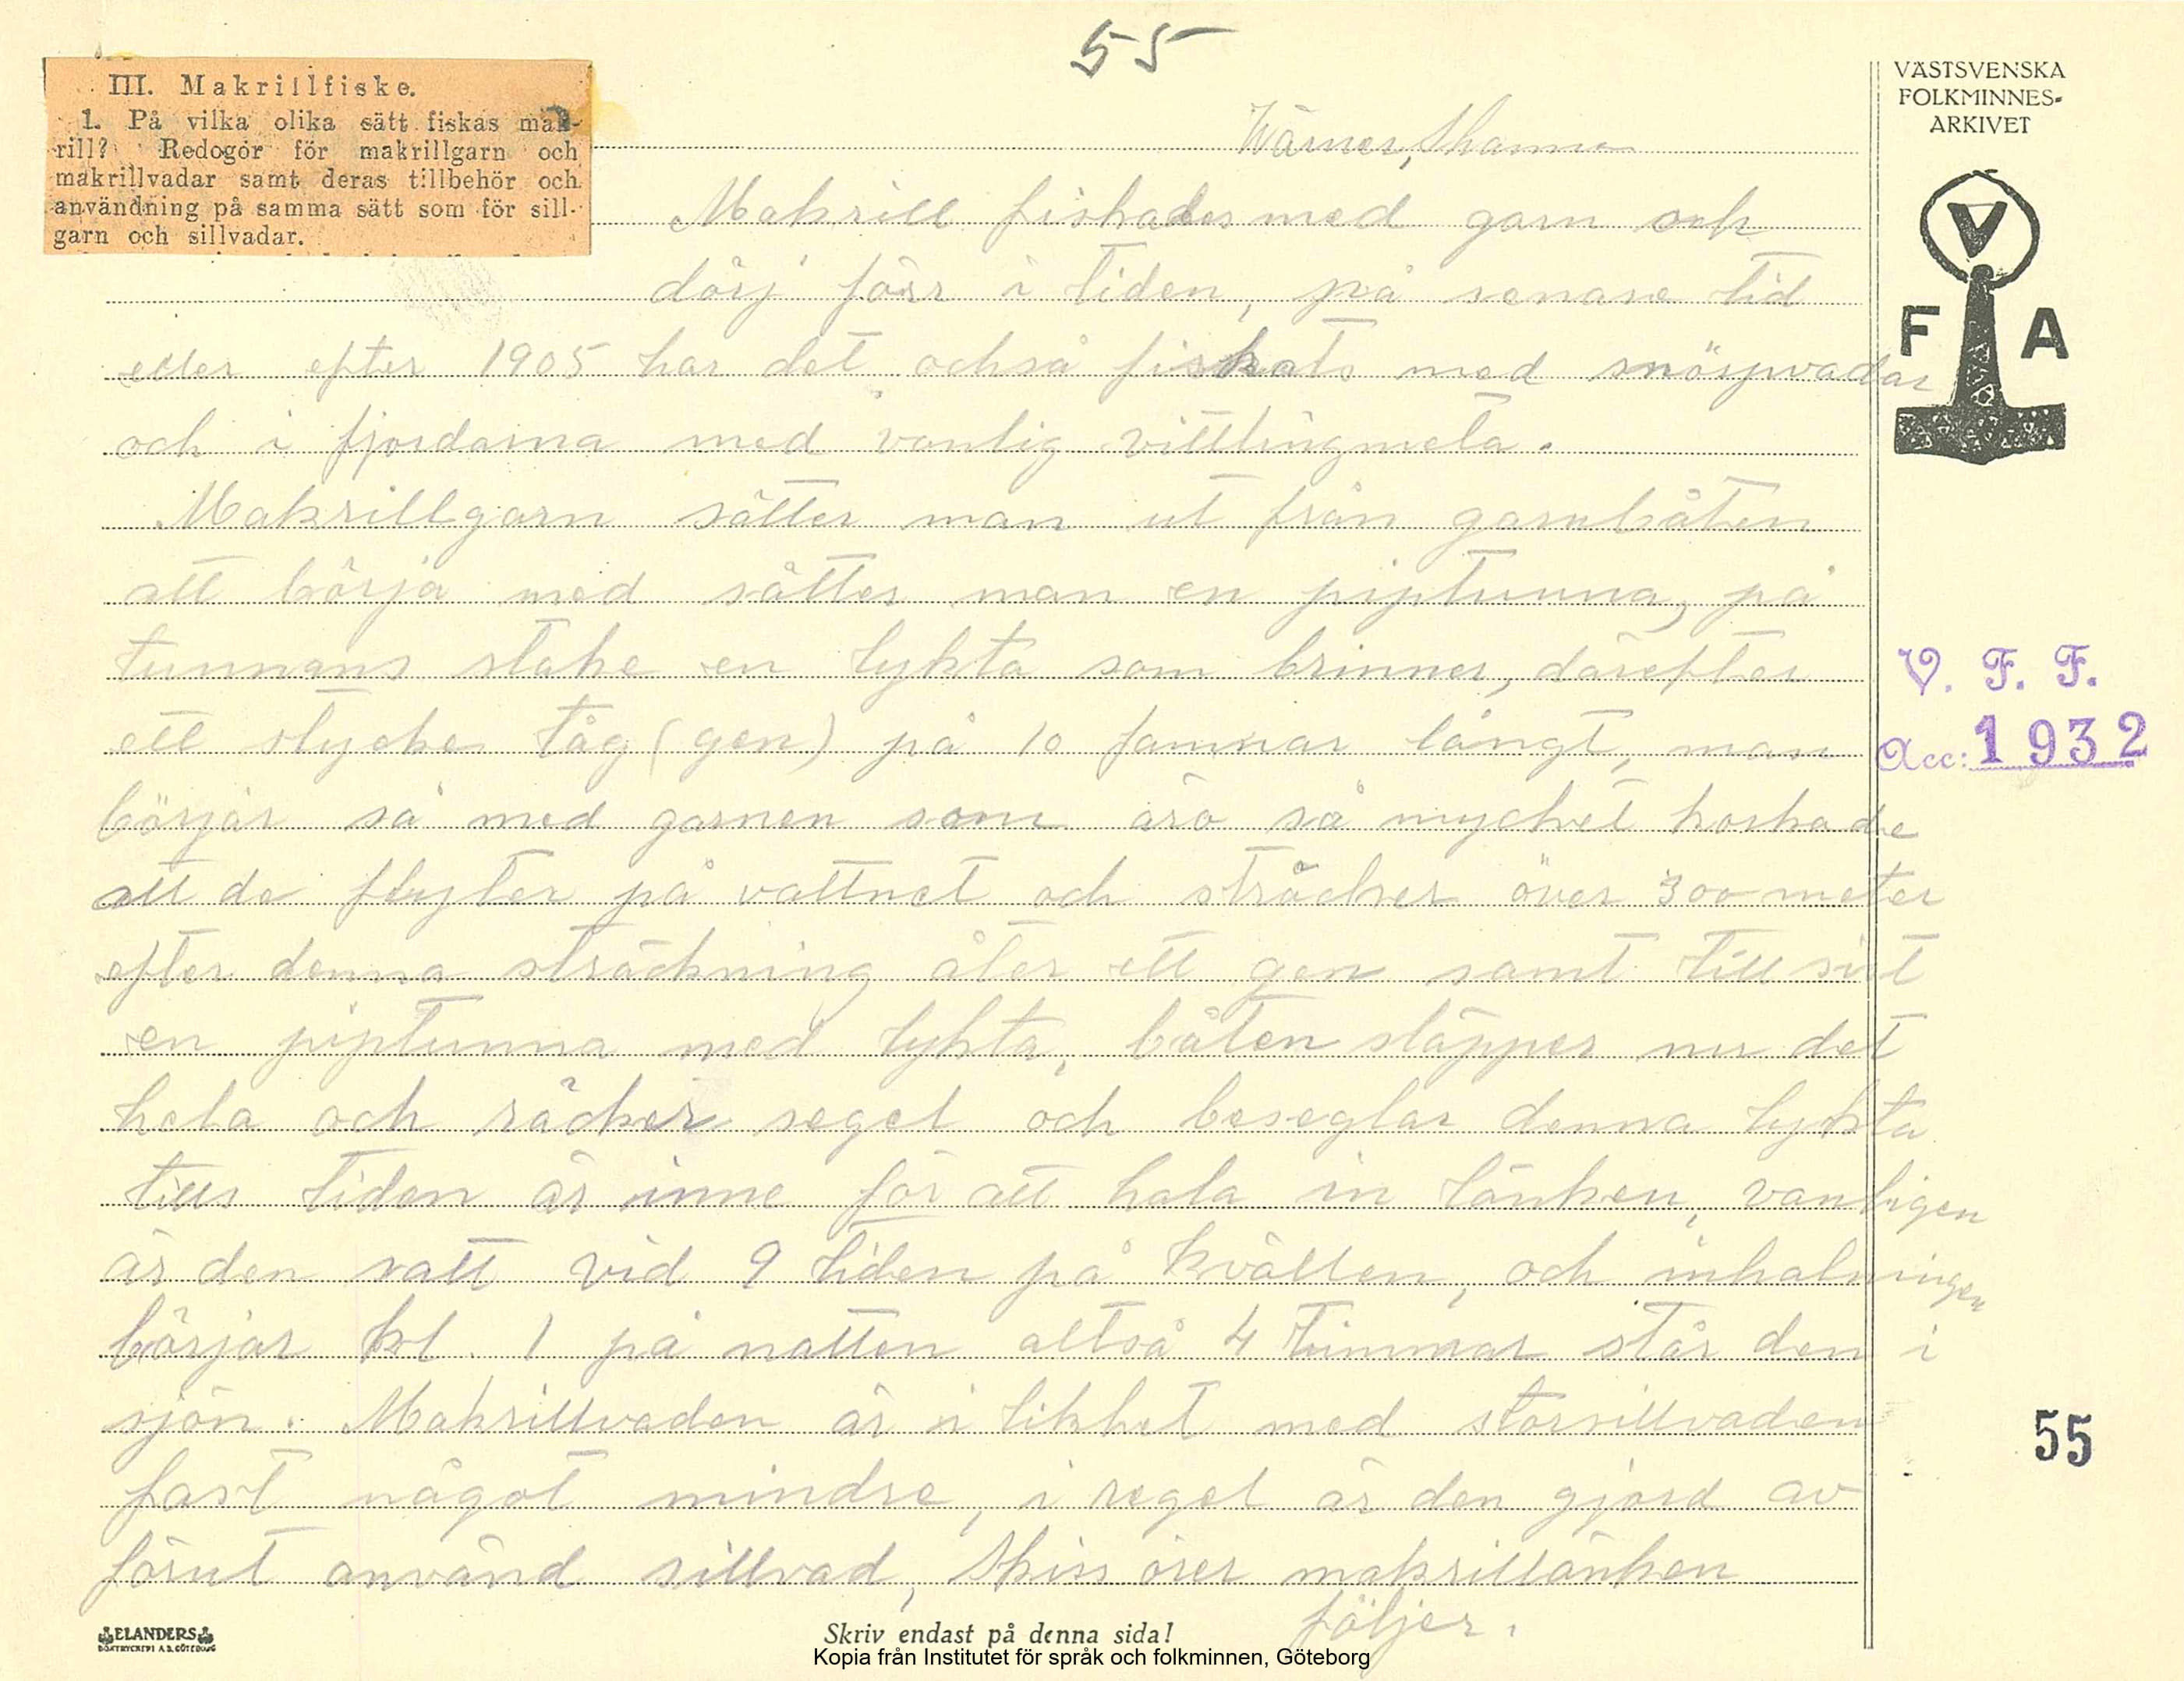 55
III. Makrillfiske.
1. På vilka olika sätt fiskas mak-
rill? Redogör för makrillgarn och
makrillvadar samt deras tillbehör och
användning på samma sätt som för sill-
garn och sillvadar.
VÄSTSVENSKA
FOLKMINNES-
ARKIVET
V
F A
Wärner,
Makrill fiskades med garn och
dörj förr i tiden, på senare tid
eller efter 1905 har det också fiskats med snörpvadar
och i fjordarna med vanlig vittlingmeta.
Makrillgarn sätter man ut från garnbåten
att börja med sätter man en piptunna, på
tunnans stake en lykta som brinner, därefter
ett stycke tåg (gen) på 10 famnar långt, man
börjar så med garnen som äro så mycket korkade
att de flyter på vattnet och sträcker över 300 meter
efter denna sträckning åter ett gen samt till sist
en piptunna med lykta, båten släpper nu det
hela och räcker segel och beseglar denna lykta
tills tiden är inne för att hala in länken, vanligen
är den satt vid 9 tiden på kvällen, och inhalningen
börjar kl. 1 på natten altså 4 timmar står den i
sjön. Makrillvaden är i likhet med storsillvaden
fast något mindre, i regel är den gjord av
förut använd sillvad, Skiss över makrillänken
följer.
V. F. F.
Acc: 1932
55
ELANDERS
BOKTRYCKERI A.B. GÖTEBORG
Skriv endast på denna sida!
Kopia från Institutet för språk och folkminnen, Göteborg